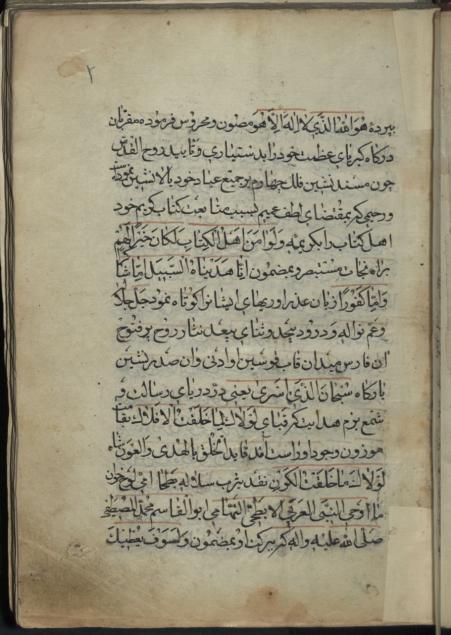 ٢
ببردهٔ هو الله الذی لا اله الا هو مصون و محروس فرموده مقربان
درکاه کبریای عظمت خود را بدستیاری و تایید روح القدس
چون مسند نشین فلک چهارم بر جمیع عباد خود بالانشین نموده
و رحیمی که بمقتضای لطف عمیم بسبب متابعت کتاب کریم خود
اهل کتاب را بکریمه ولو امن اهل الکتاب لکان خیرا لهم
براه نجات مستبصر و بمضمون انا هدیناه السبیل اما شاکرا
و اما کفورا زبان عذر اوریهای ایشانرا کوتاه نمود جل جلاله
و عم نواله و درود بیحد و ثنای بیعد نثار روح پر فتوح
ان فارس میدان قاب قوسین او ادنی و ان صدر نشین
بارکاه سبحان الذی اسری یعنی در دریای رسالت و
شمع بزم هدایت که قبای لولاک لما خلقت الافلاک بقامت
موزون وجود او راست آمد قاید الخلق بالهدی والعون شاه
لولاک ما خلقت الکون نقد یثرب سلاله بطحا امی لوح خوان
ما اوحی النبی العربی الابطحی التهامی ابو القاسم محمد المصطفی
صلی الله علیه واله که ببرکت او بمضمون ولسوف یعطیک